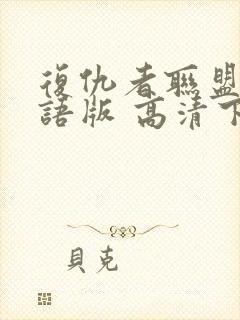 復仇者聯盟
語版 高清下
貝克